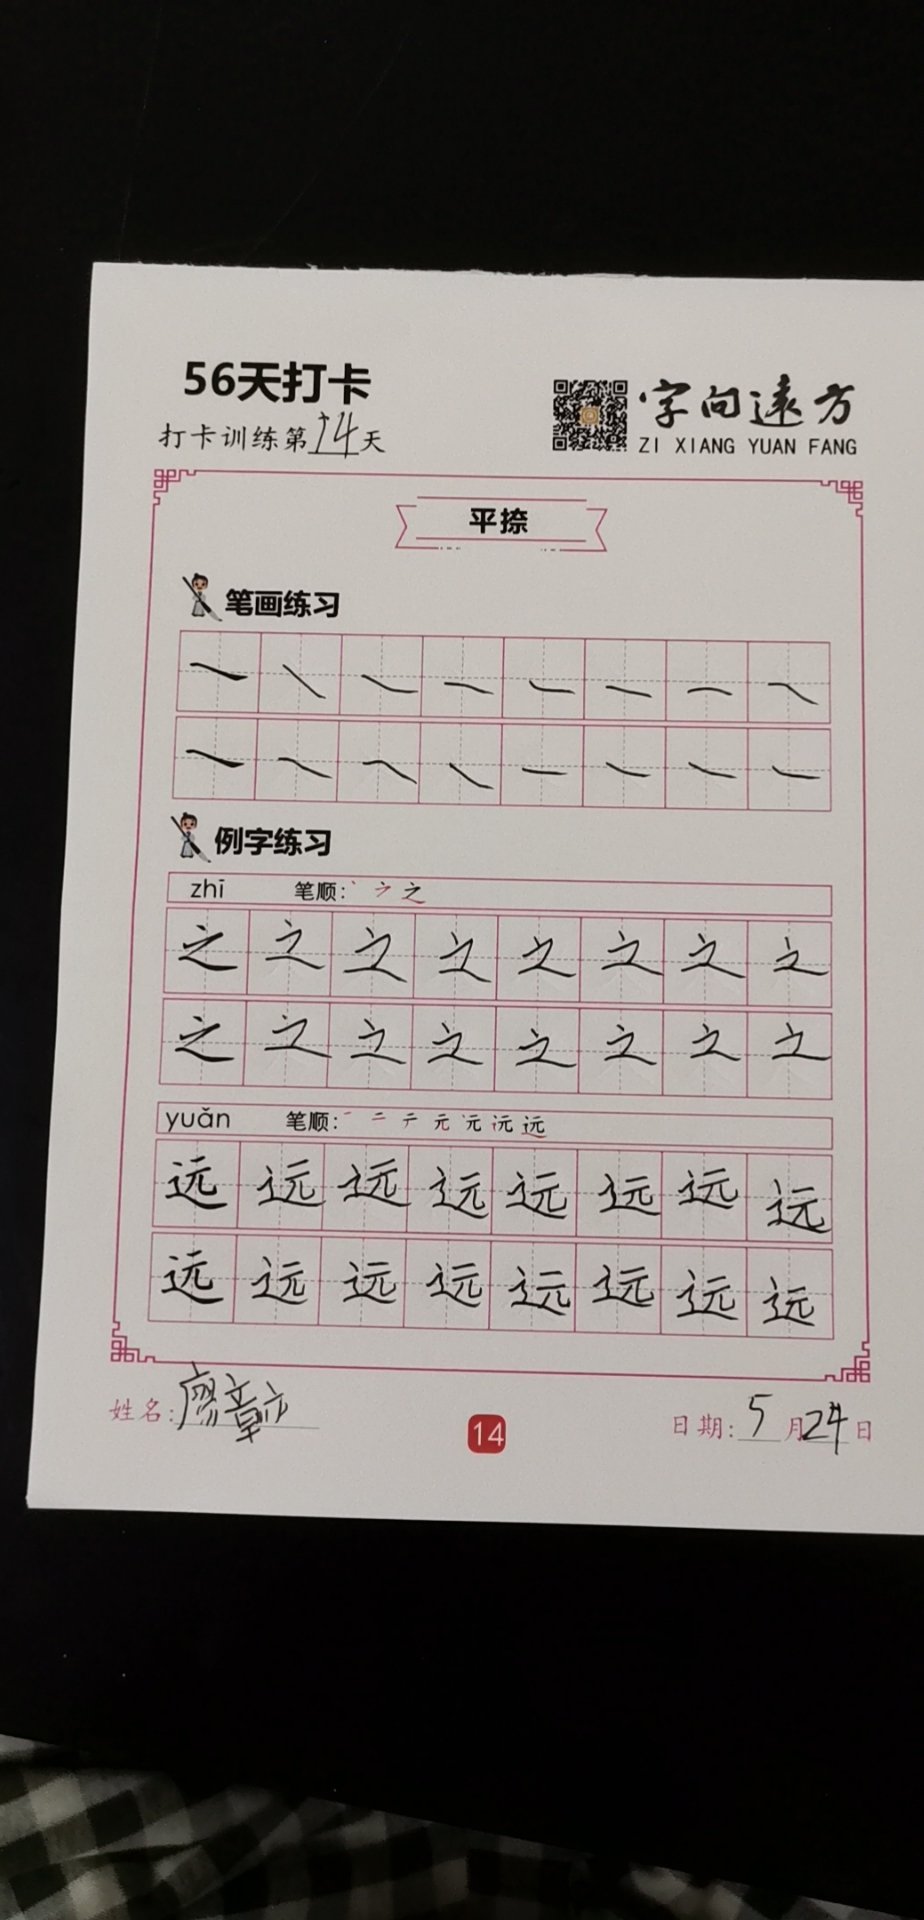 56天打卡
打卡训练第14天
字向远方
ZI XIANG YUAN FANG
平捺
笔画练习
例字练习
zhī 笔顺: 丶 ㇇ 之
之 之 之 之 之 之 之 之
之 之 之 之 之 之 之 之
yuǎn 笔顺: 一 二 テ 元 沅 远 远
远 远 远 远 远 远 远 远
远 远 远 远 远 远 远 远
姓名:廖章
14
日期:5月24日